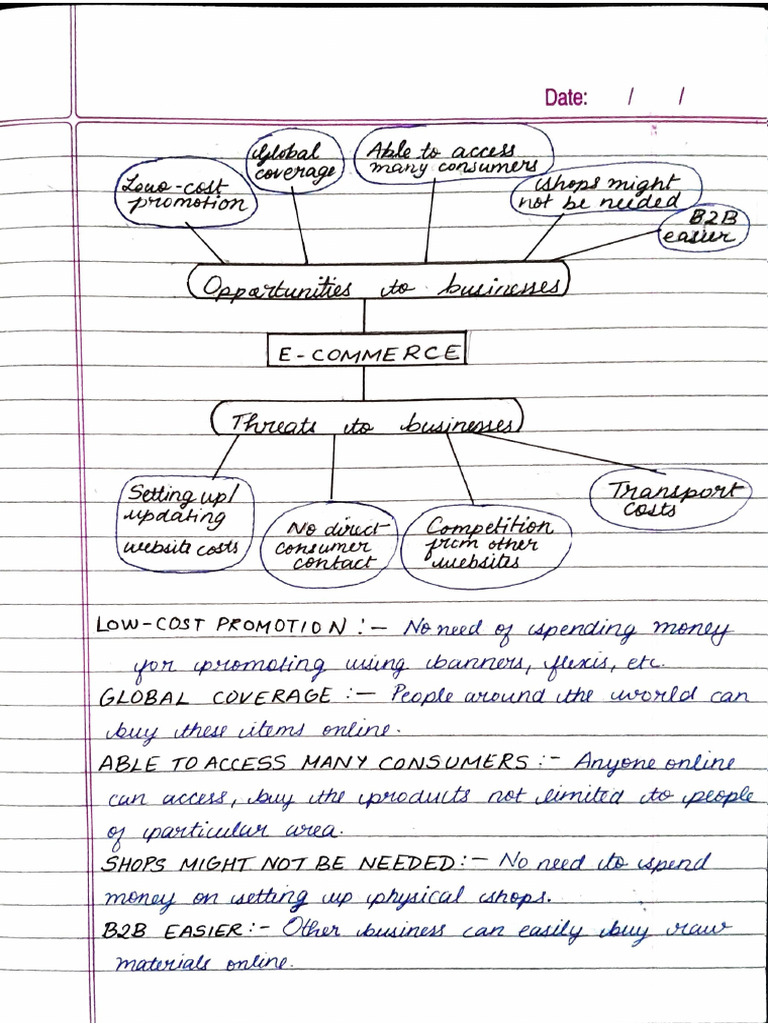 Date: / /
Low-cost
promotion
Global
coverage
Able to access
many consumers
shops might
not be needed
B2B
easier
Opportunities to businesses
E-COMMERCE
Threats to businesses
Setting up/
updating
website costs
No direct
consumer
contact
Competition
from other
websites
Transport
costs
LOW-COST PROMOTION :- No need of spending money
for promoting using banners, flexis, etc.
GLOBAL COVERAGE :- People around the world can
buy these items online.
ABLE TO ACCESS MANY CONSUMERS :- Anyone online
can access, buy the products not limited to people
of particular area.
SHOPS MIGHT NOT BE NEEDED :- No need to spend
money on setting up physical shops.
B2B EASIER :- Other business can easily buy raw
materials online.